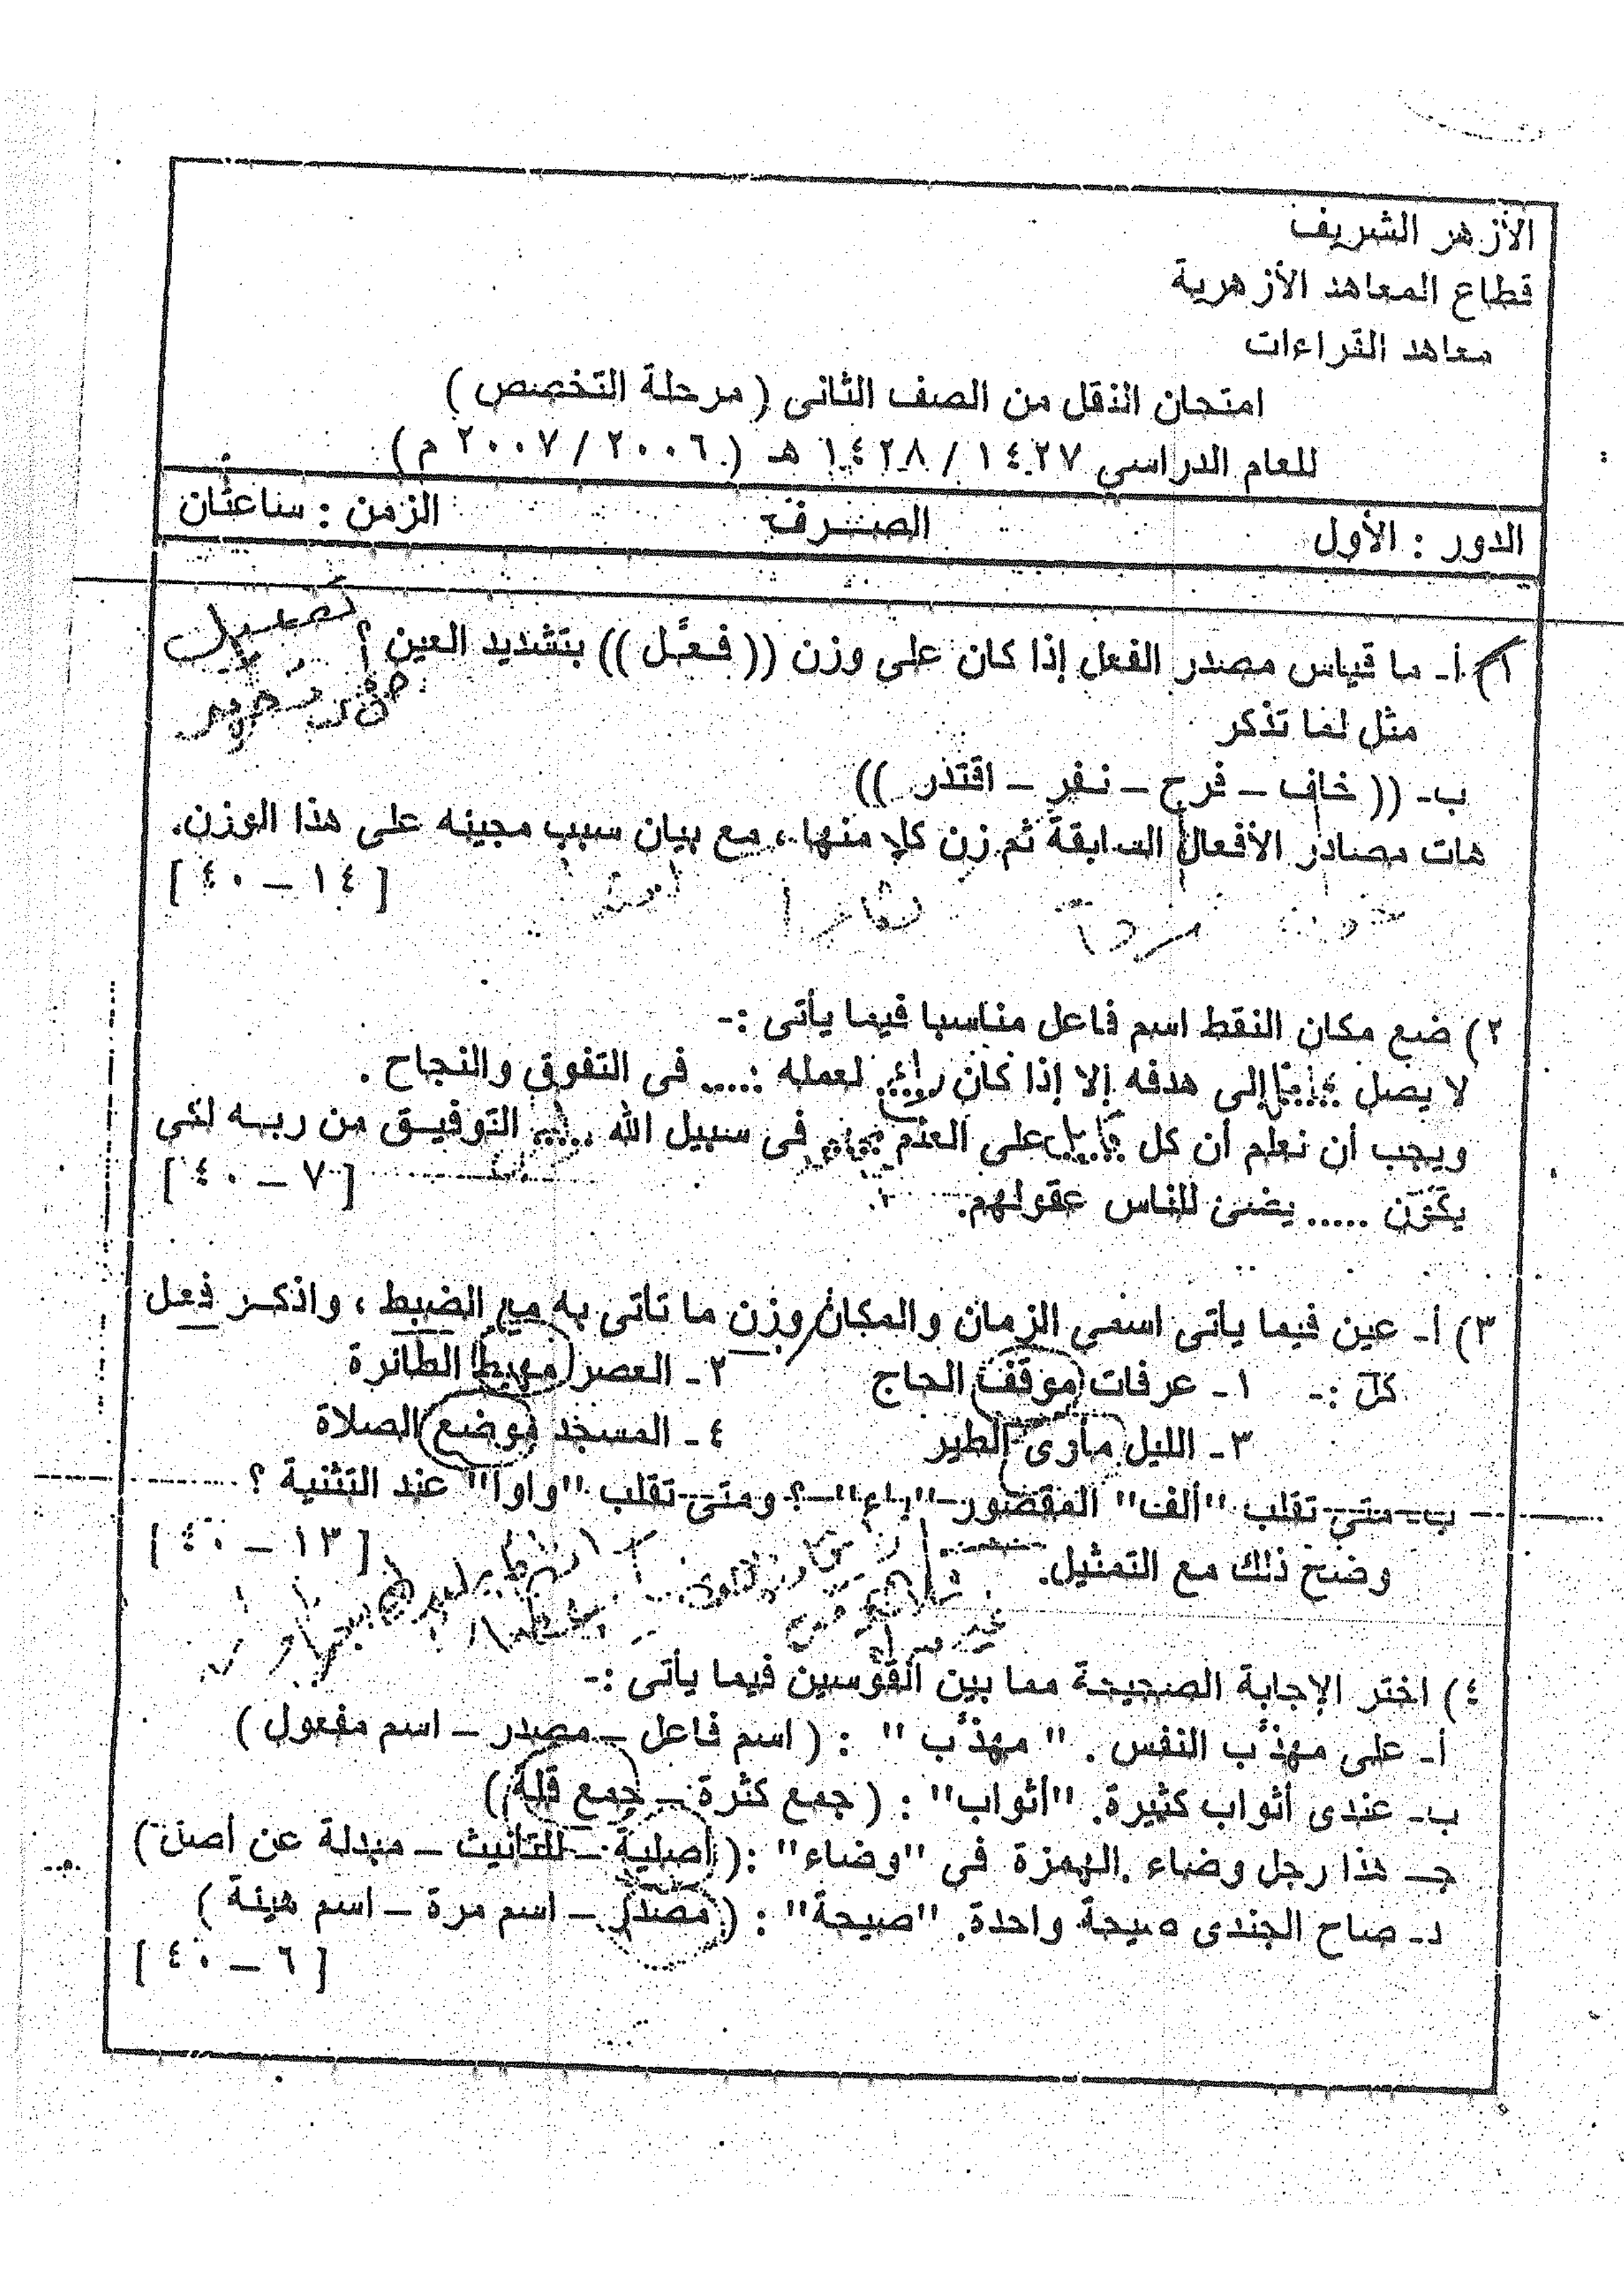 الأزهر الشريف
قطاع المعاهد الأزهرية
معاهد القراءات
امتحان النقل من الصف الثانى ( مرحلة التخصص )
للعام الدراسي ١٤٢٧ / ١٤٢٨ هـ ( ٢٠٠٦ / ٢٠٠٧ م )
الدور : الأول الصــرف الزمن : ساعتان
١) أ- ما قياس مصدر الفعل إذا كان على وزن (( فعَّل )) بتشديد العين ؟
مثل لما تذكر
ب- (( خاف – فرح – نفر – اقتدر ))
هات مصادر الأفعال السابقة ثم زن كلا منها ، مع بيان سبب مجيئه على هذا الوزن.
[ ١٤ – ٤٠ ]
٢) ضع مكان النقط اسم فاعل مناسبا فيما يأتى :-
لا يصل ..... إلى هدفه إلا إذا كان ..... لعمله ..... فى التفوق والنجاح .
ويجب أن نعلم أن كل ..... على العلم ..... فى سبيل الله ..... التوفيـق من ربـه لكى
يكون ..... يضئ للناس عقولهم. [ ٧ – ٤٠ ]
٣) أ- عين فيما يأتى اسمي الزمان والمكان وزن ما تأتى به مع الضبط ، واذكـر فعل
كل :- ١- عرفات موقف الحاج ٢- العصر مهبط الطائرة
٣- الليل مأوى الطير ٤- المسجد موضع الصلاة
ب- متى تقلب "ألف" المقصور "ياء" ؟ ومتى تقلب "واوا" عند التثنية ؟
وضح ذلك مع التمثيل. [ ١٣ – ٤٠ ]
٤) اختر الإجابة الصحيحة مما بين القوسين فيما يأتى :-
أ- على مهذَّب النفس . " مهذَّب " : ( اسم فاعل – مصدر – اسم مفعول )
ب- عندى أثواب كثيرة. "أثواب" : ( جمع كثرة – جمع قلة )
جـ- هذا رجل وضاء . الهمزة فى "وضاء" : ( أصلية – للتأنيث – مبدلة عن أصل )
د- صاح الجندى صيحة واحدة. "صيحة" : ( مصدر – اسم مرة – اسم هيئة )
[ ٦ – ٤٠ ]